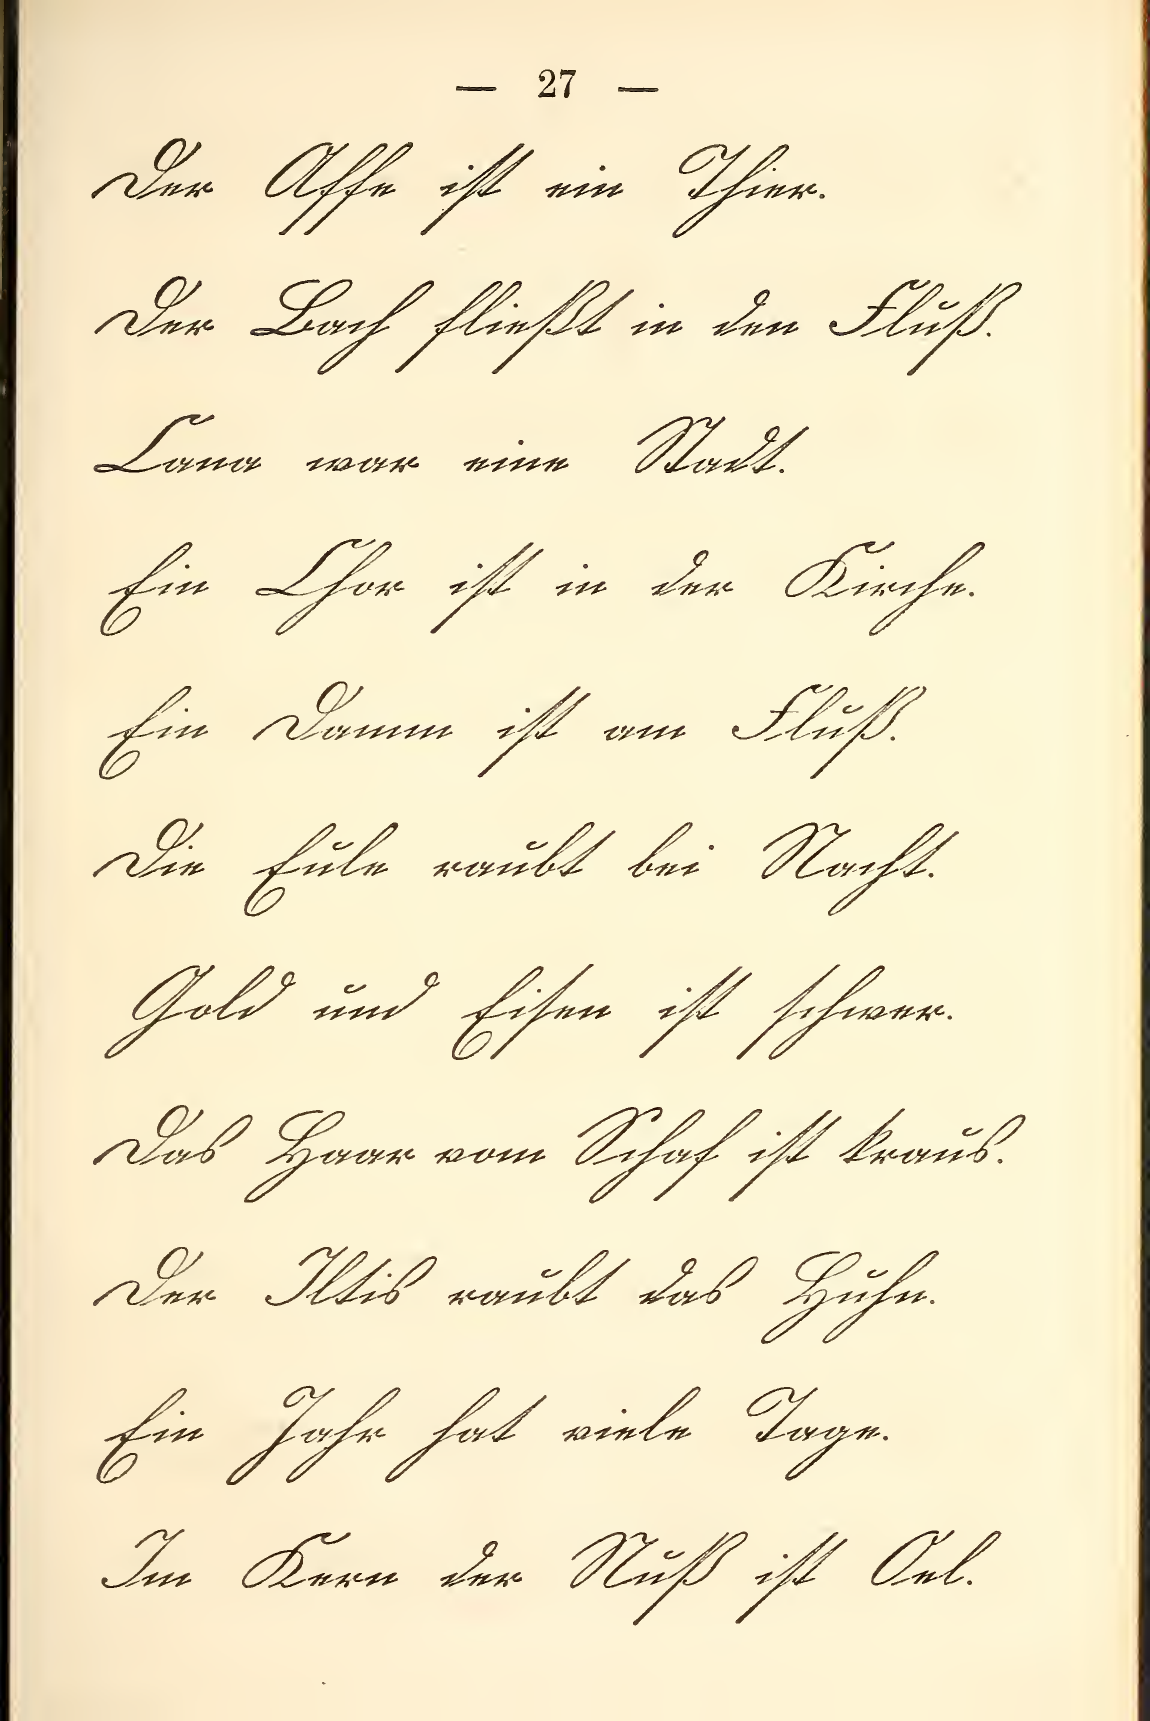 — 27 —
Der Affe ist ein Thier.
Der Bach fließt in den Fluß.
Cana war eine Stadt.
Ein Chor ist in der Kirche.
Ein Damm ist am Fluß.
Die Eule raubt bei Nacht.
Gold und Eisen ist schwer.
Das Haar vom Schaf ist kraus.
Der Iltis raubt das Huhn.
Ein Jahr hat viele Tage.
Im Kern der Nuß ist Oel.